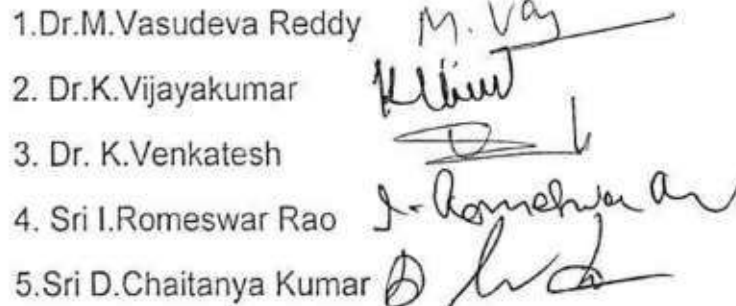 1.Dr.M.Vasudeva Reddy M. Vas
2. Dr.K.Vijayakumar
3. Dr. K.Venkatesh
4. Sri I.Romeswar Rao I. Romeshwar Rao
5.Sri D.Chaitanya Kumar